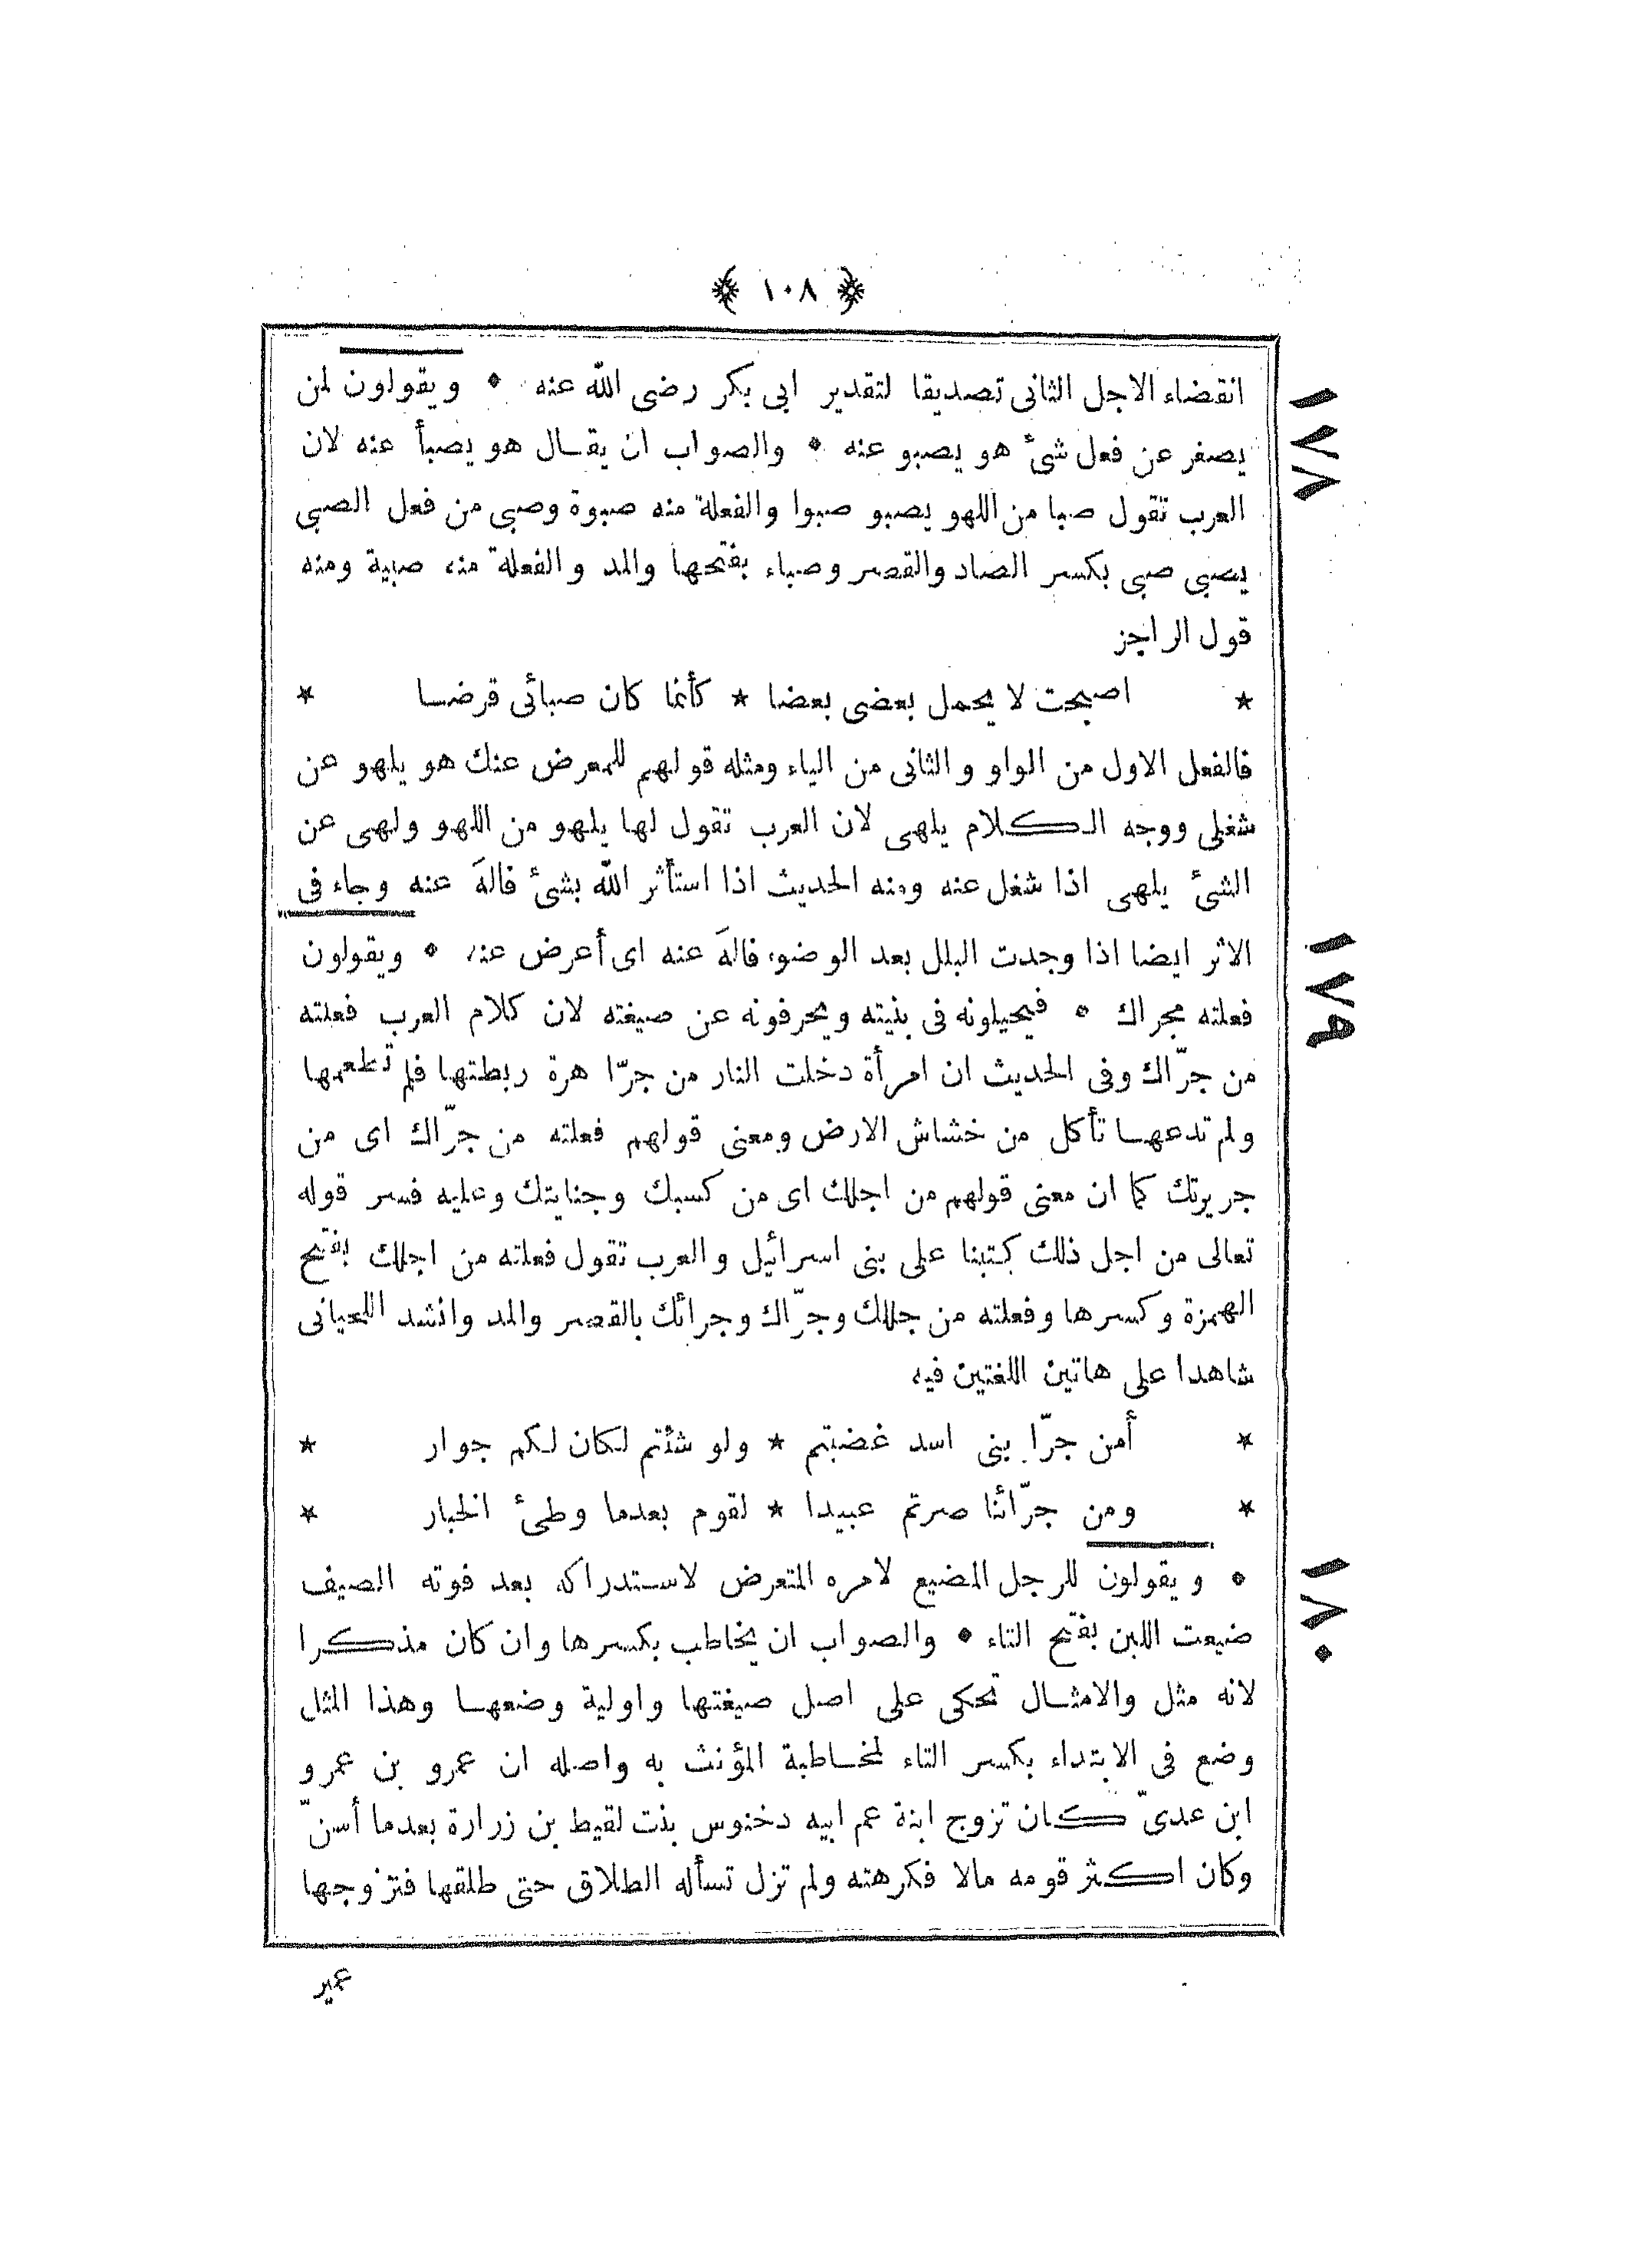 ﴿ ١٠٨ ﴾
انقضاء الاجل الثانى تصديقا لتقدير ابى بكر رضى الله عنه • ويقولون لمن
١٧٨
يصغر عن فعل شئ هو يصبو عنه • والصواب ان يقال هو يصبأ عنه لان
العرب تقول صبا من اللهو يصبو صبوا والفعلة منه صبوة وصبى من فعل الصبى
يصبى صبى بكسر الصاد والقصر وصباء بفتحها والمد والفعلة منه صبية ومنه
قول الراجز
* اصبحت لا يحمل بعضى بعضا * كأنما كان صبائى قرضا *
فالفعل الاول من الواو والثانى من الياء ومثله قولهم للمعرض عنك هو يلهو عن
شغلى ووجه الكلام يلهى لان العرب تقول لها يلهو من اللهو ولهى عن
الشئ يلهى اذا شغل عنه ومنه الحديث اذا استأثر الله بشئ فالهَ عنه وجاء فى
الاثر ايضا اذا وجدت البلل بعد الوضوء فالهَ عنه اى أعرض عنه • ويقولون
١٧٩
فعلته مجراك • فيحيلونه فى بنيته ويحرفونه عن صيغته لان كلام العرب فعلته
من جرّاك وفى الحديث ان امرأة دخلت النار من جرّا هرة ربطتها فلم تطعمها
ولم تدعها تأكل من خشاش الارض ومعنى قولهم فعلته من جرّاك اى من
جريرتك كما ان معنى قولهم من اجلك اى من كسبك وجنايتك وعليه فسر قوله
تعالى من اجل ذلك كتبنا على بنى اسرائيل والعرب تقول فعلته من اجلك بفتح
الهمزة وكسرها وفعلته من جللك وجرّاك وجرائك بالقصر والمد وانشد اللحيانى
شاهدا على هاتين اللغتين فيه
* أمن جرّا بنى اسد غضبتم * ولو شئتم لكان لكم جوار *
* ومن جرّائنا صرتم عبيدا * لقوم بعدما وطئ الخبار *
• ويقولون للرجل المضيع لامره المتعرض لاستدراكه بعد فوته الصيف
١٨٠
ضيعت اللبن بفتح التاء • والصواب ان يخاطب بكسرها وان كان مذكرا
لانه مثل والامثال تحكى على اصل صيغتها واولية وضعها وهذا المثل
وضع فى الابتداء بكسر التاء لمخاطبة المؤنث به واصله ان عمرو بن عمرو
ابن عدىّ كان تزوج ابنة عم ابيه دخنوس بنت لقيط بن زرارة بعدما أسنّ
وكان اكثر قومه مالا فكرهته ولم تزل تسأله الطلاق حتى طلقها فتزوجها
عمير